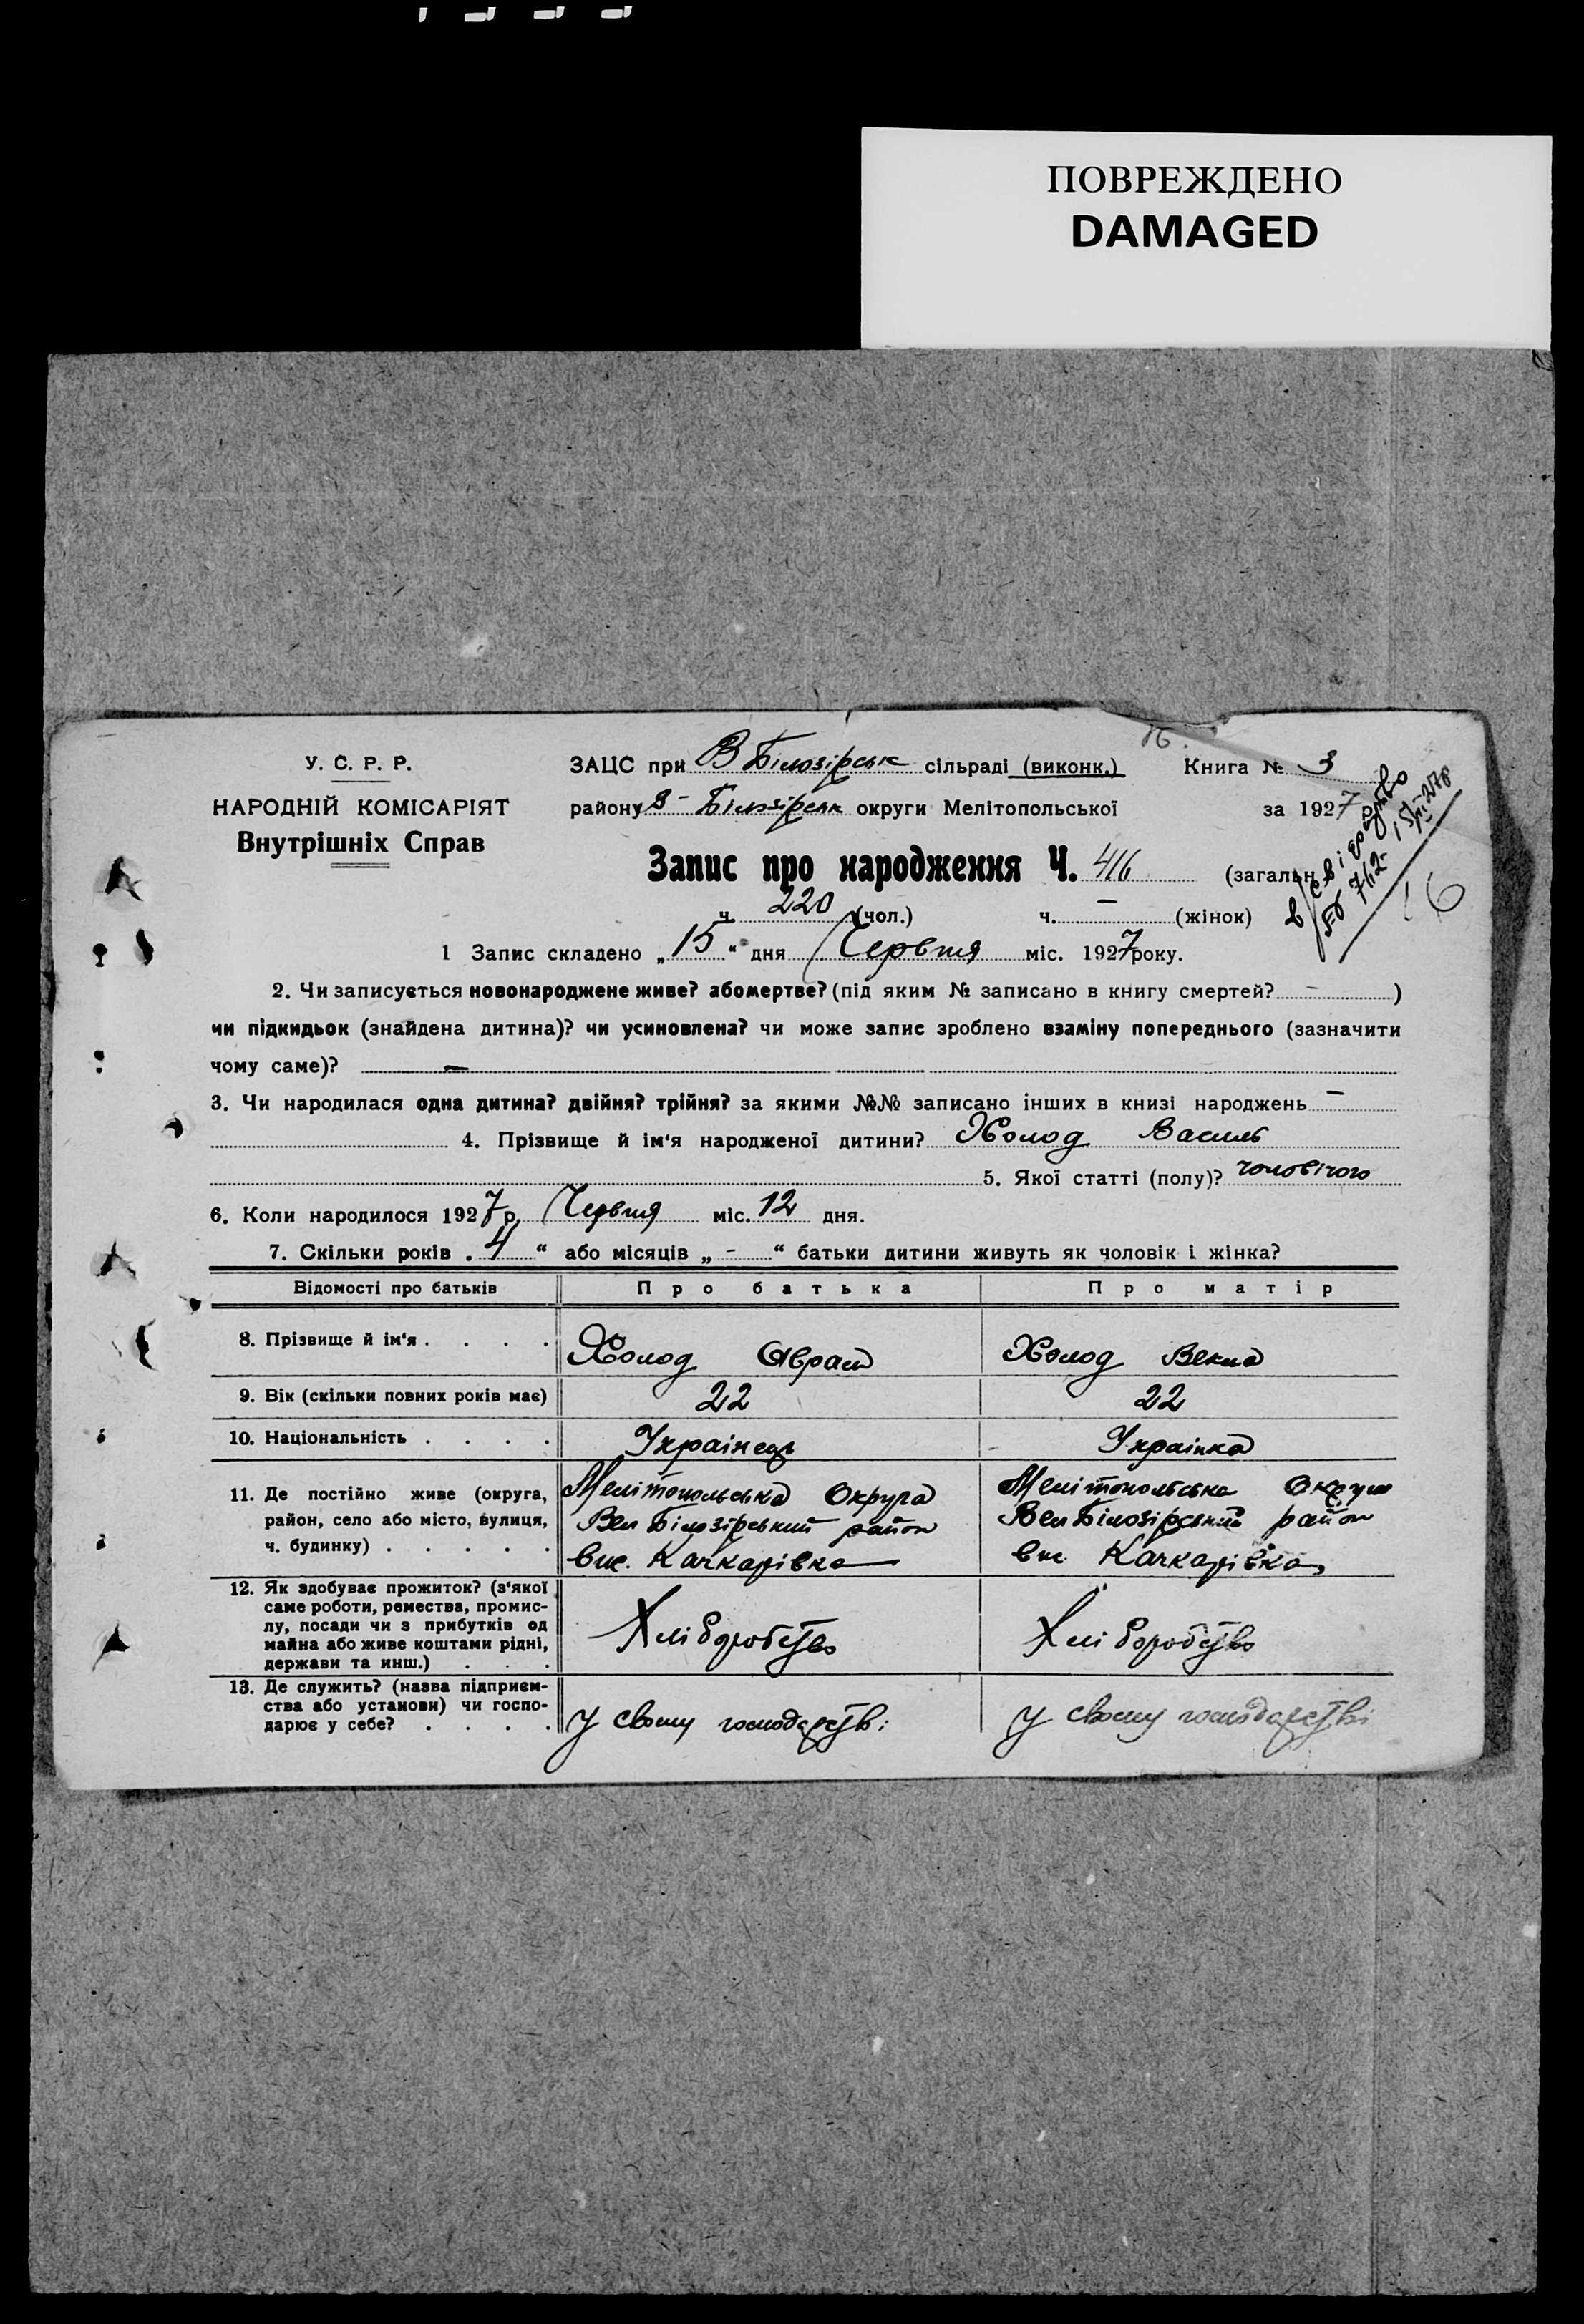 ПОВРЕЖДЕНО
DAMAGED
У. С. Р. Р.
НАРОДНІЙ КОМІСАРІЯТ
Внутрішніх Справ
ЗАЦС при В Білозірськ сільраді (виконк.) Книга № 3
району В-Білозірськ округи Мелітопольської за 1927
Запис про народження Ч. 416 (загальн
ч. 220 (чол.) ч. — (жінок)
16
1 Запис складено „15“ дня Червня міс. 1927 року.
2. Чи записується новонароджене живе? або мертве? (під яким № записано в книгу смертей? — )
чи підкидьок (знайдена дитина)? чи усиновлена? чи може запис зроблено взаміну попереднього (зазначити
чому саме)? —
3. Чи народилася одна дитина? двійня? трійня? за якими №№ записано інших в книзі народжень —
4. Прізвище й ім‘я народженої дитини? Холод Василь
5. Якої статті (полу)? чоловічого
6. Коли народилося 1927 р. Червня міс. 12 дня.
7. Скільки років „4“ або місяців „ - “ батьки дитини живуть як чоловік і жінка?
Відомості про батьків Про батька Про матір
8. Прізвище й ім‘я . . . . Холод Аврам Холод Векла
9. Вік (скільки повних років має) 22 22
10. Національність . . . . Українець Українка
11. Де постійно живе (округа, район, село або місто, вулиця, ч. будинку) . . . . .
Мелітопольська Округа
Вел Білозірський район
вис. Качкарівка
Мелітопольська Округа
Вел Білозірський район
вис. Качкарівка
12. Як здобуває прожиток? (з‘якої
саме роботи, ремества, промис-
лу, посади чи з прибутків од
майна або живе коштами рідні,
держави та инш.) . . .
Хліборобство Хліборобство
13. Де служить? (назва підприєм-
ства або установи) чи госпо-
дарює у себе? . . . .
у свому господарстві у свому господарстві